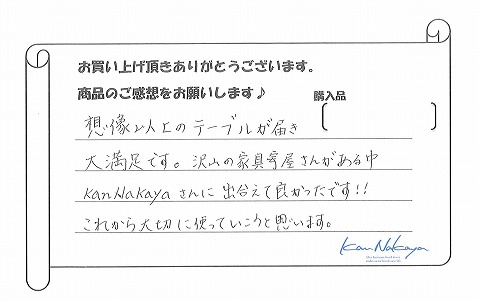 お買い上げ頂きありがとうございます。
商品のご感想をお願いします♪
購入品
想像以上のテーブルが届き
大満足です。沢山の家具寄屋さんがある中
KanNakayaさんに出合えて良かったです!!
これから大切に使っていこうと思います。
KanNakaya